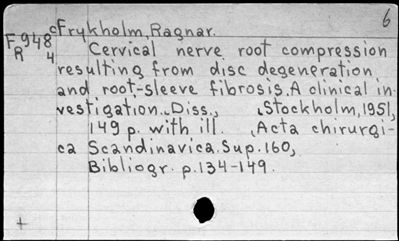 6
cFrykholm, Ragnar.
F948 Cervical nerve root compression
R 4
resulting from disc degeneration
and root-sleeve fibrosis. A clinical in-
vestigation. Diss., Stockholm, 1951,
149 p. with ill. Acta chirurgi-
ca Scandinavica. Sup. 160,
Bibliogr. p. 134-149.
+